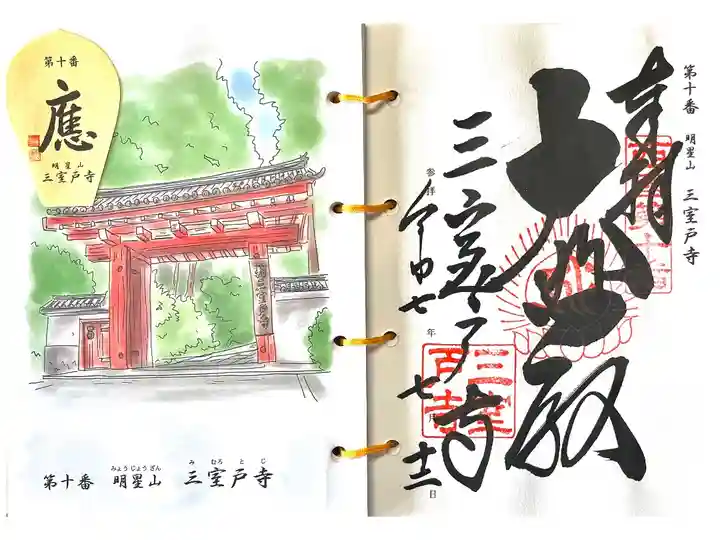 第十番
應
明星山
三室戸寺
みょうじょうざん み むろ と じ
第十番 明星山 三室戸寺
第十番 明星山 三室戸寺
奉拝
大悲殿
三室戸寺
参拝 令和七年 七月 十二日